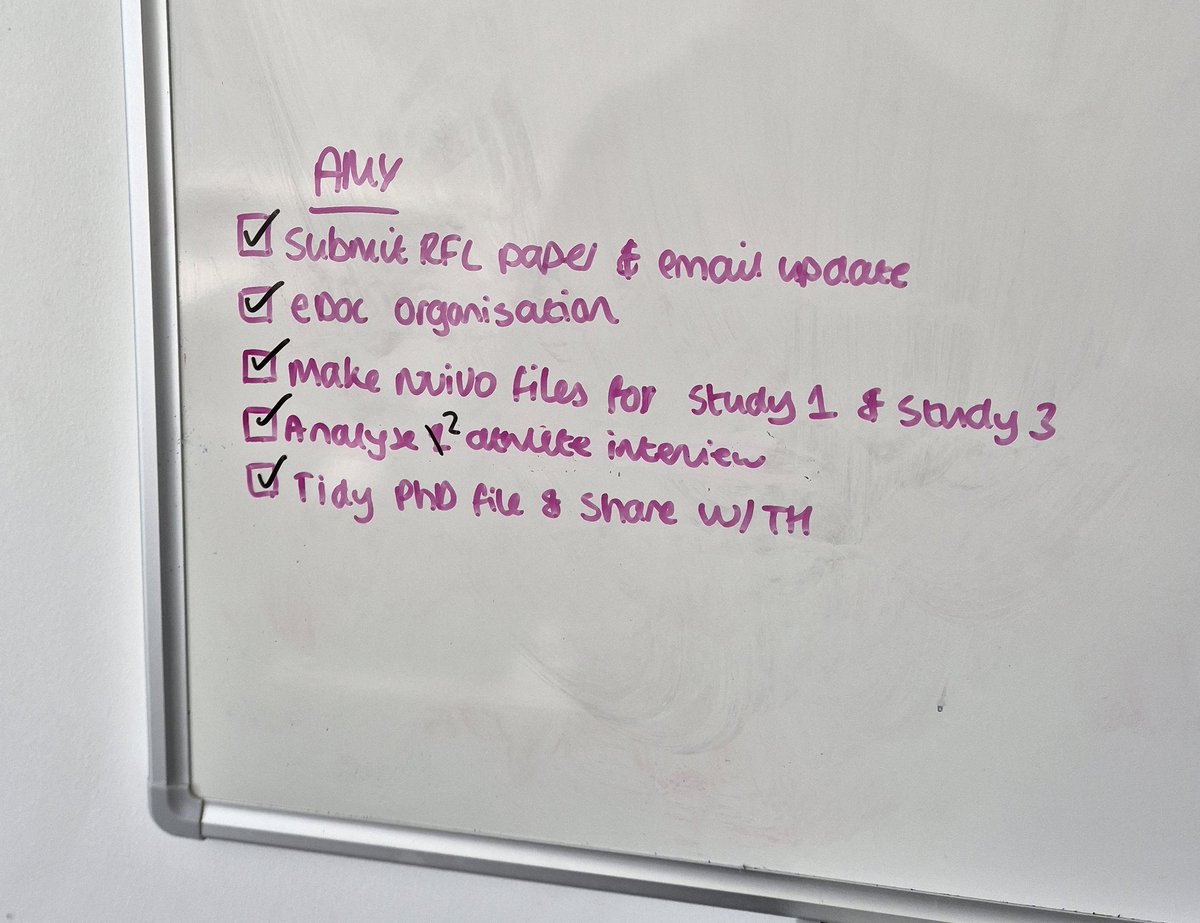 AMY
☑ Submit RFL paper & email update
☑ eDoc organisation
☑ Make nvivo files for study 1 & study 3
☑ Analyse 2 athlete interview
☑ Tidy PhD file & share w/ TH